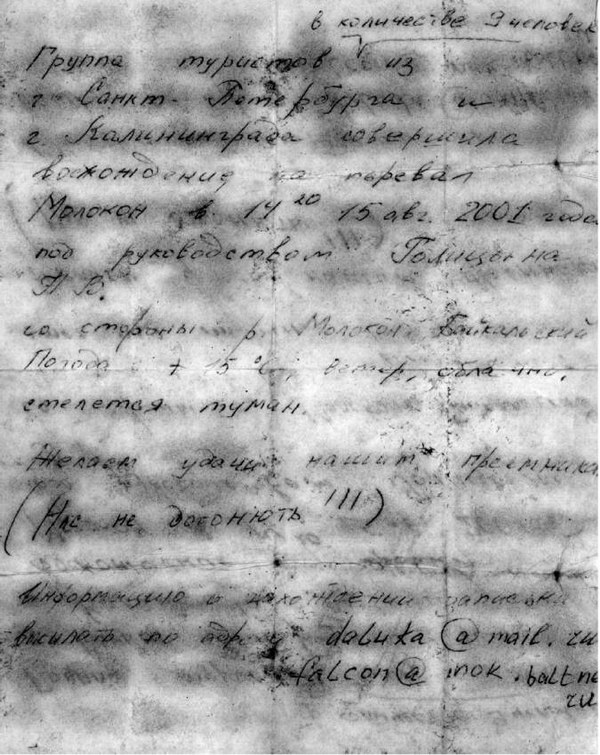 в количестве 9 человек
Группа туристов из
г. Санкт-Петербурга и
г. Калининграда совершила
восхождение на перевал
Молокон в 14 20 15 авг. 2001 года
под руководством Голицына
П. В.
со стороны р. Молокон Байкальский
Погода: +15°С, ветер, облачно,
стелется туман.
Желаем удачи нашим преемникам
(Нас не догонють !!!)
Информацию о нахождении записки
высылать по адресу daluka@mail.ru
falcon@inok.baltnet
ru